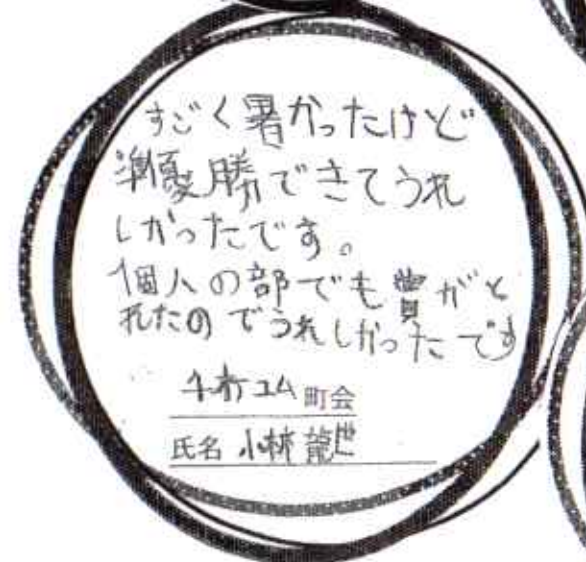 すごく暑かったけど
準優勝できてうれ
しかったです。
個人の部でも賞がと
れたのでうれしかったです
町会
氏名 小林 龍世